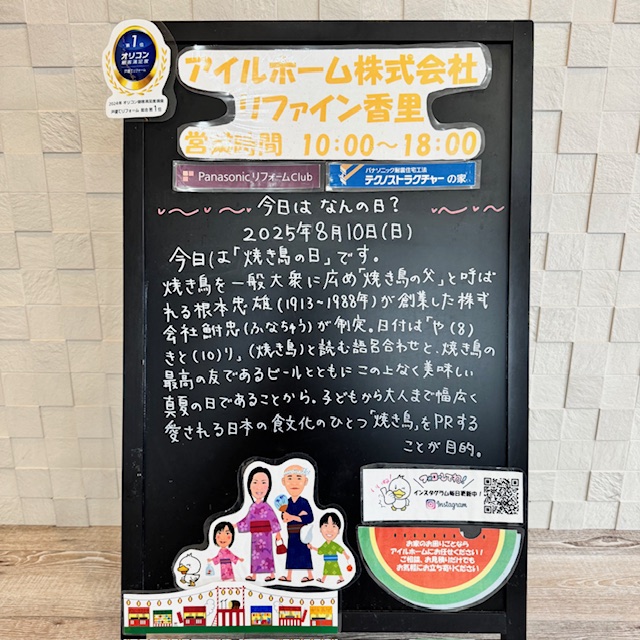 第1位
オリコン
顧客満足度
2024年 オリコン顧客満足度調査
戸建てリフォーム 第1位
アイルホーム株式会社
リファイン香里
営業時間 10:00〜18:00
Panasonic リフォームClub
パナソニック耐震住宅工法
テクノストラクチャーの家
今日は なんの日？
2025年8月10日(日)
今日は「焼き鳥の日」です。
焼き鳥を一般大衆に広め「焼き鳥の父」と呼ば
れる根本忠雄(1913〜1988年)が創業した株式
会社鮒忠(ふなちゅう)が制定。日付は「や(8)
きと(10)り」(焼き鳥)と読む語呂合わせと、焼き鳥の
最高の友であるビールとともに この上なく美味しい
真夏の日であることから。子どもから大人まで幅広く
愛される日本の食文化のひとつ「焼き鳥」をPRする
ことが目的。
フォローしてね!
インスタグラム毎日更新中!
Instagram
お家のお困りごとなら
アイルホームにお任せください!
ご相談、お見積りだけでも
お気軽にお立ち寄りください!